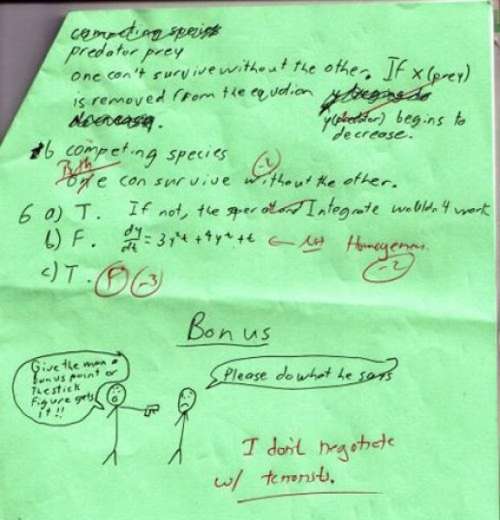 competing species
predator prey
one can't survive without the other. If x (prey)
is removed from the equation y begins to
decreasing. y(predator) begins to
decrease.
b competing species
Both
One can survive without the other. -2
6 a) T. If not, the sper and Integrate wouldn't work
b) F. dy/dt = 3y²t + 4y² + t ← not Homogenous. -2
c) T. F -3
Bonus
Give the man a
bonus point or
the stick
figure gets
it!!
Please do what he says
I don't negotiate
w/ terrorists.